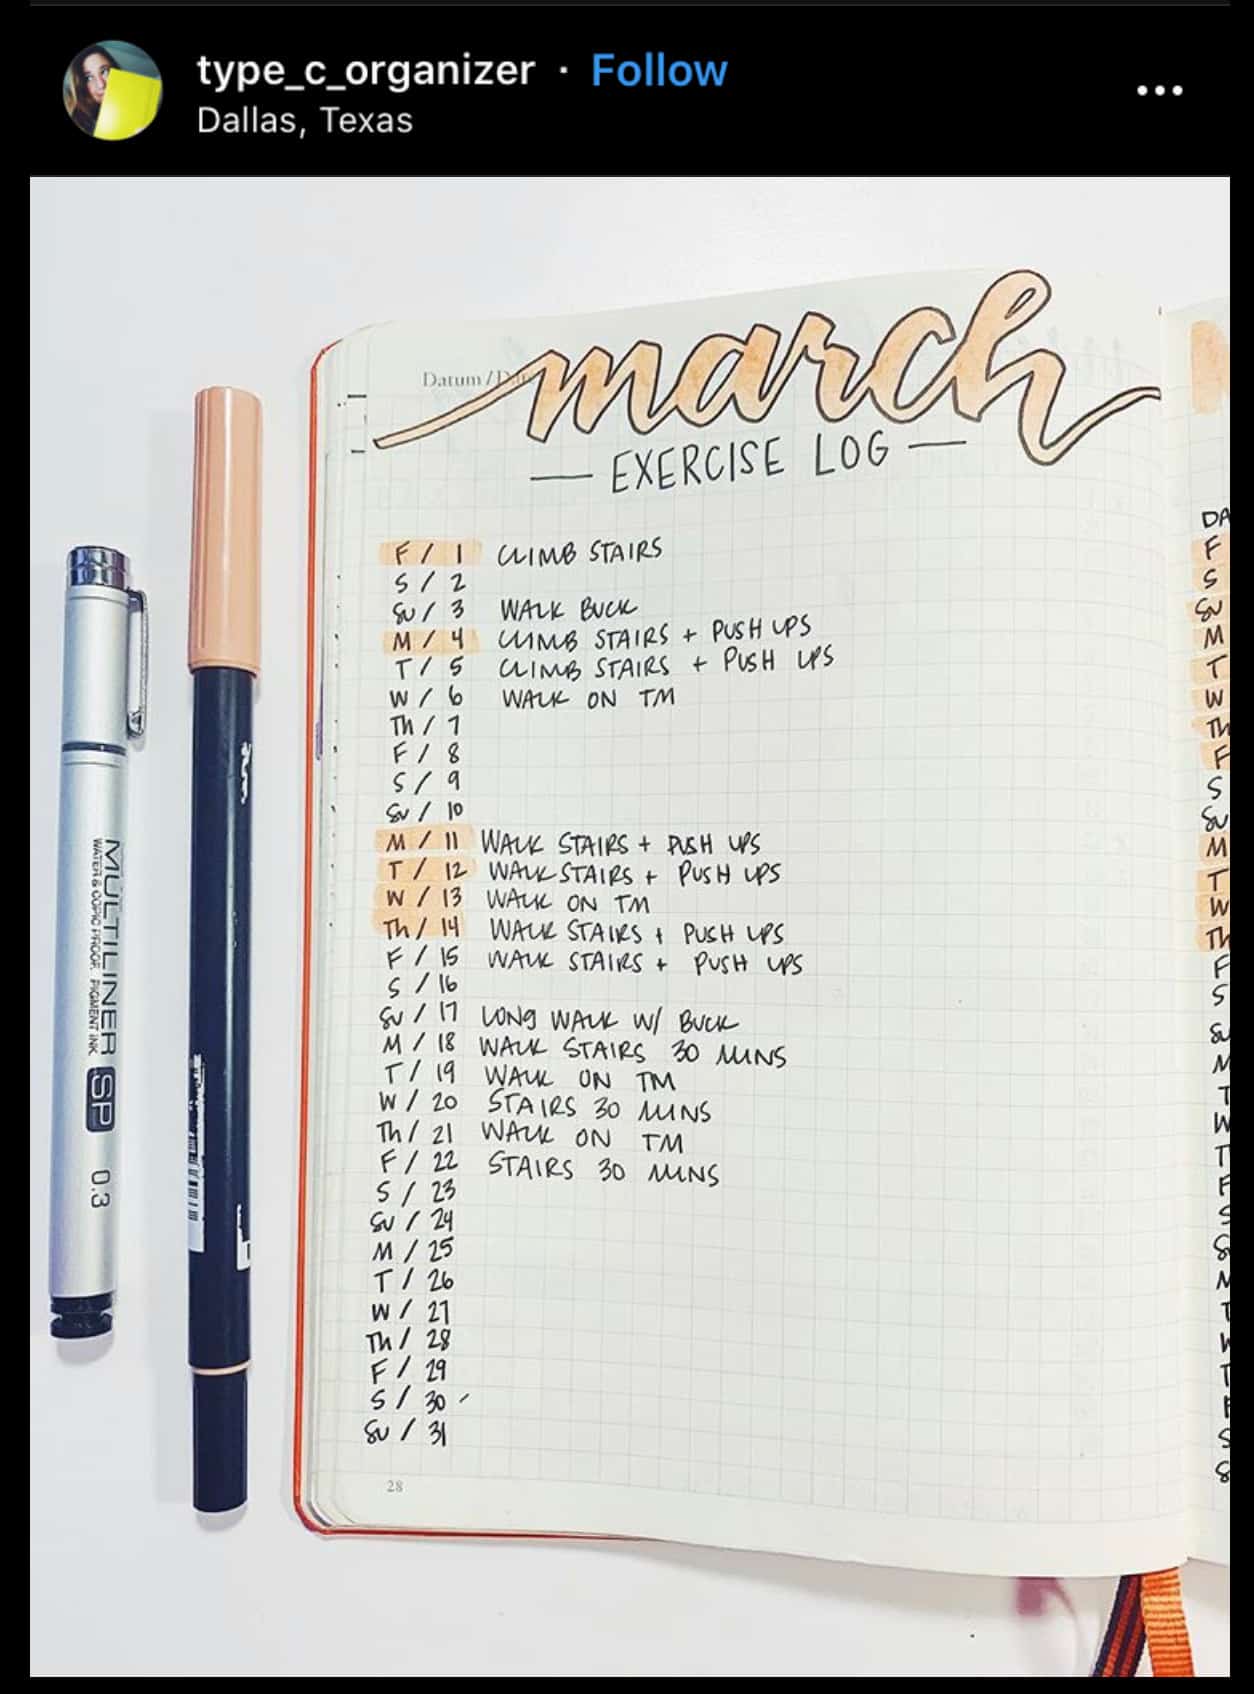 type_c_organizer · Follow
Dallas, Texas
Datum /
march
— EXERCISE LOG —
F / 1 CLIMB STAIRS
S / 2
SU / 3 WALK BUCK
M / 4 CLIMB STAIRS + PUSH UPS
T / 5 CLIMB STAIRS + PUSH UPS
W / 6 WALK ON TM
Th / 7
F / 8
S / 9
SU / 10
M / 11 WALK STAIRS + PUSH UPS
T / 12 WALK STAIRS + PUSH UPS
W / 13 WALK ON TM
Th / 14 WALK STAIRS + PUSH UPS
F / 15 WALK STAIRS + PUSH UPS
S / 16
SU / 17 LONG WALK W/ BUCK
M / 18 WALK STAIRS 30 MINS
T / 19 WALK ON TM
W / 20 STAIRS 30 MINS
Th / 21 WALK ON TM
F / 22 STAIRS 30 MINS
S / 23
SU / 24
M / 25
T / 26
W / 27
Th / 28
F / 29
S / 30
SU / 31
28
MULTILINER SP 0.3
WATER & COPIC PROOF PIGMENT INK
DA
F
S
SU
M
T
W
Th
F
S
SU
M
T
W
Th
F
S
SU
M
T
W